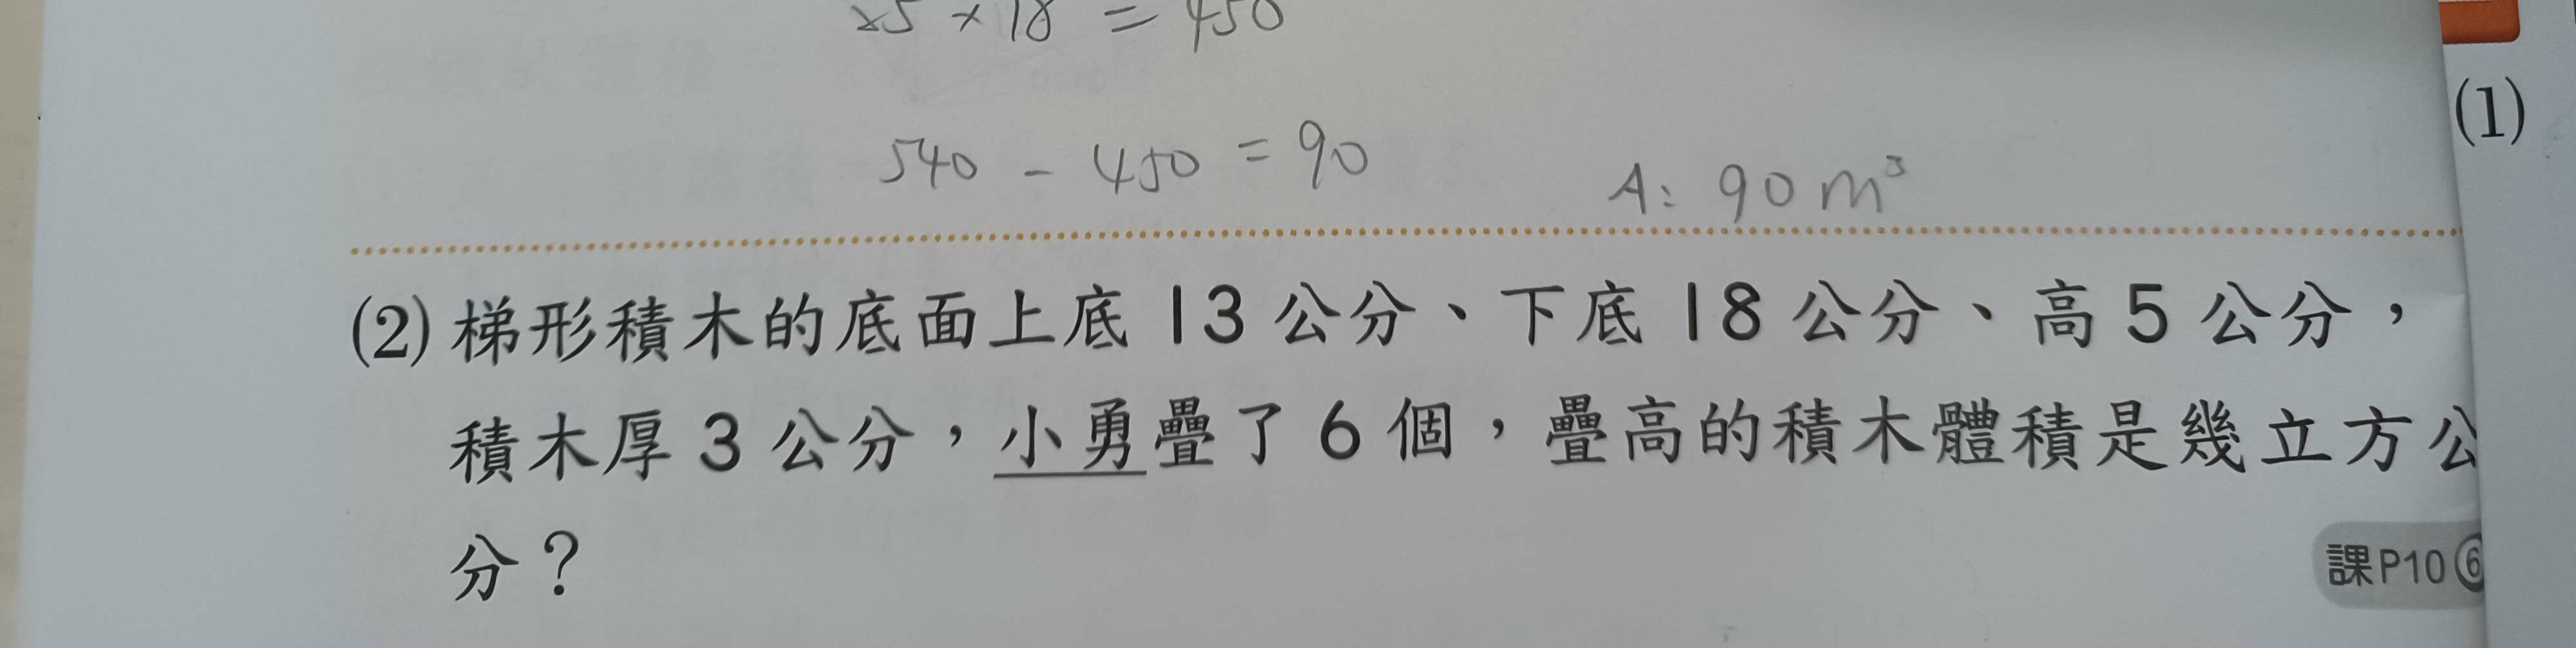 25 × 18 = 450
540 - 450 = 90
A: 90 m³
(1)
(2) 梯形積木的底面上底 13 公分、下底 18 公分、高 5 公分，
積木厚 3 公分，小勇疊了 6 個，疊高的積木體積是幾立方公
分？
課P10 ⑥